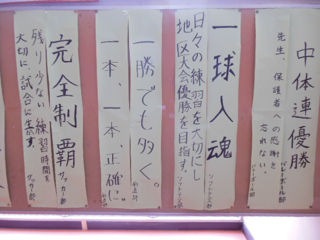 中体連優勝
先生、保護者への感謝を
忘れない
バレーボール部
一球入魂
日々の練習を大切にし
地区大会優勝を目指す。
ソフトテニス部
一勝でも多く。
一本、一本、正確に。
完全制覇
サッカー部
残り少ない練習時間を
大切に、試合に
サッカー部